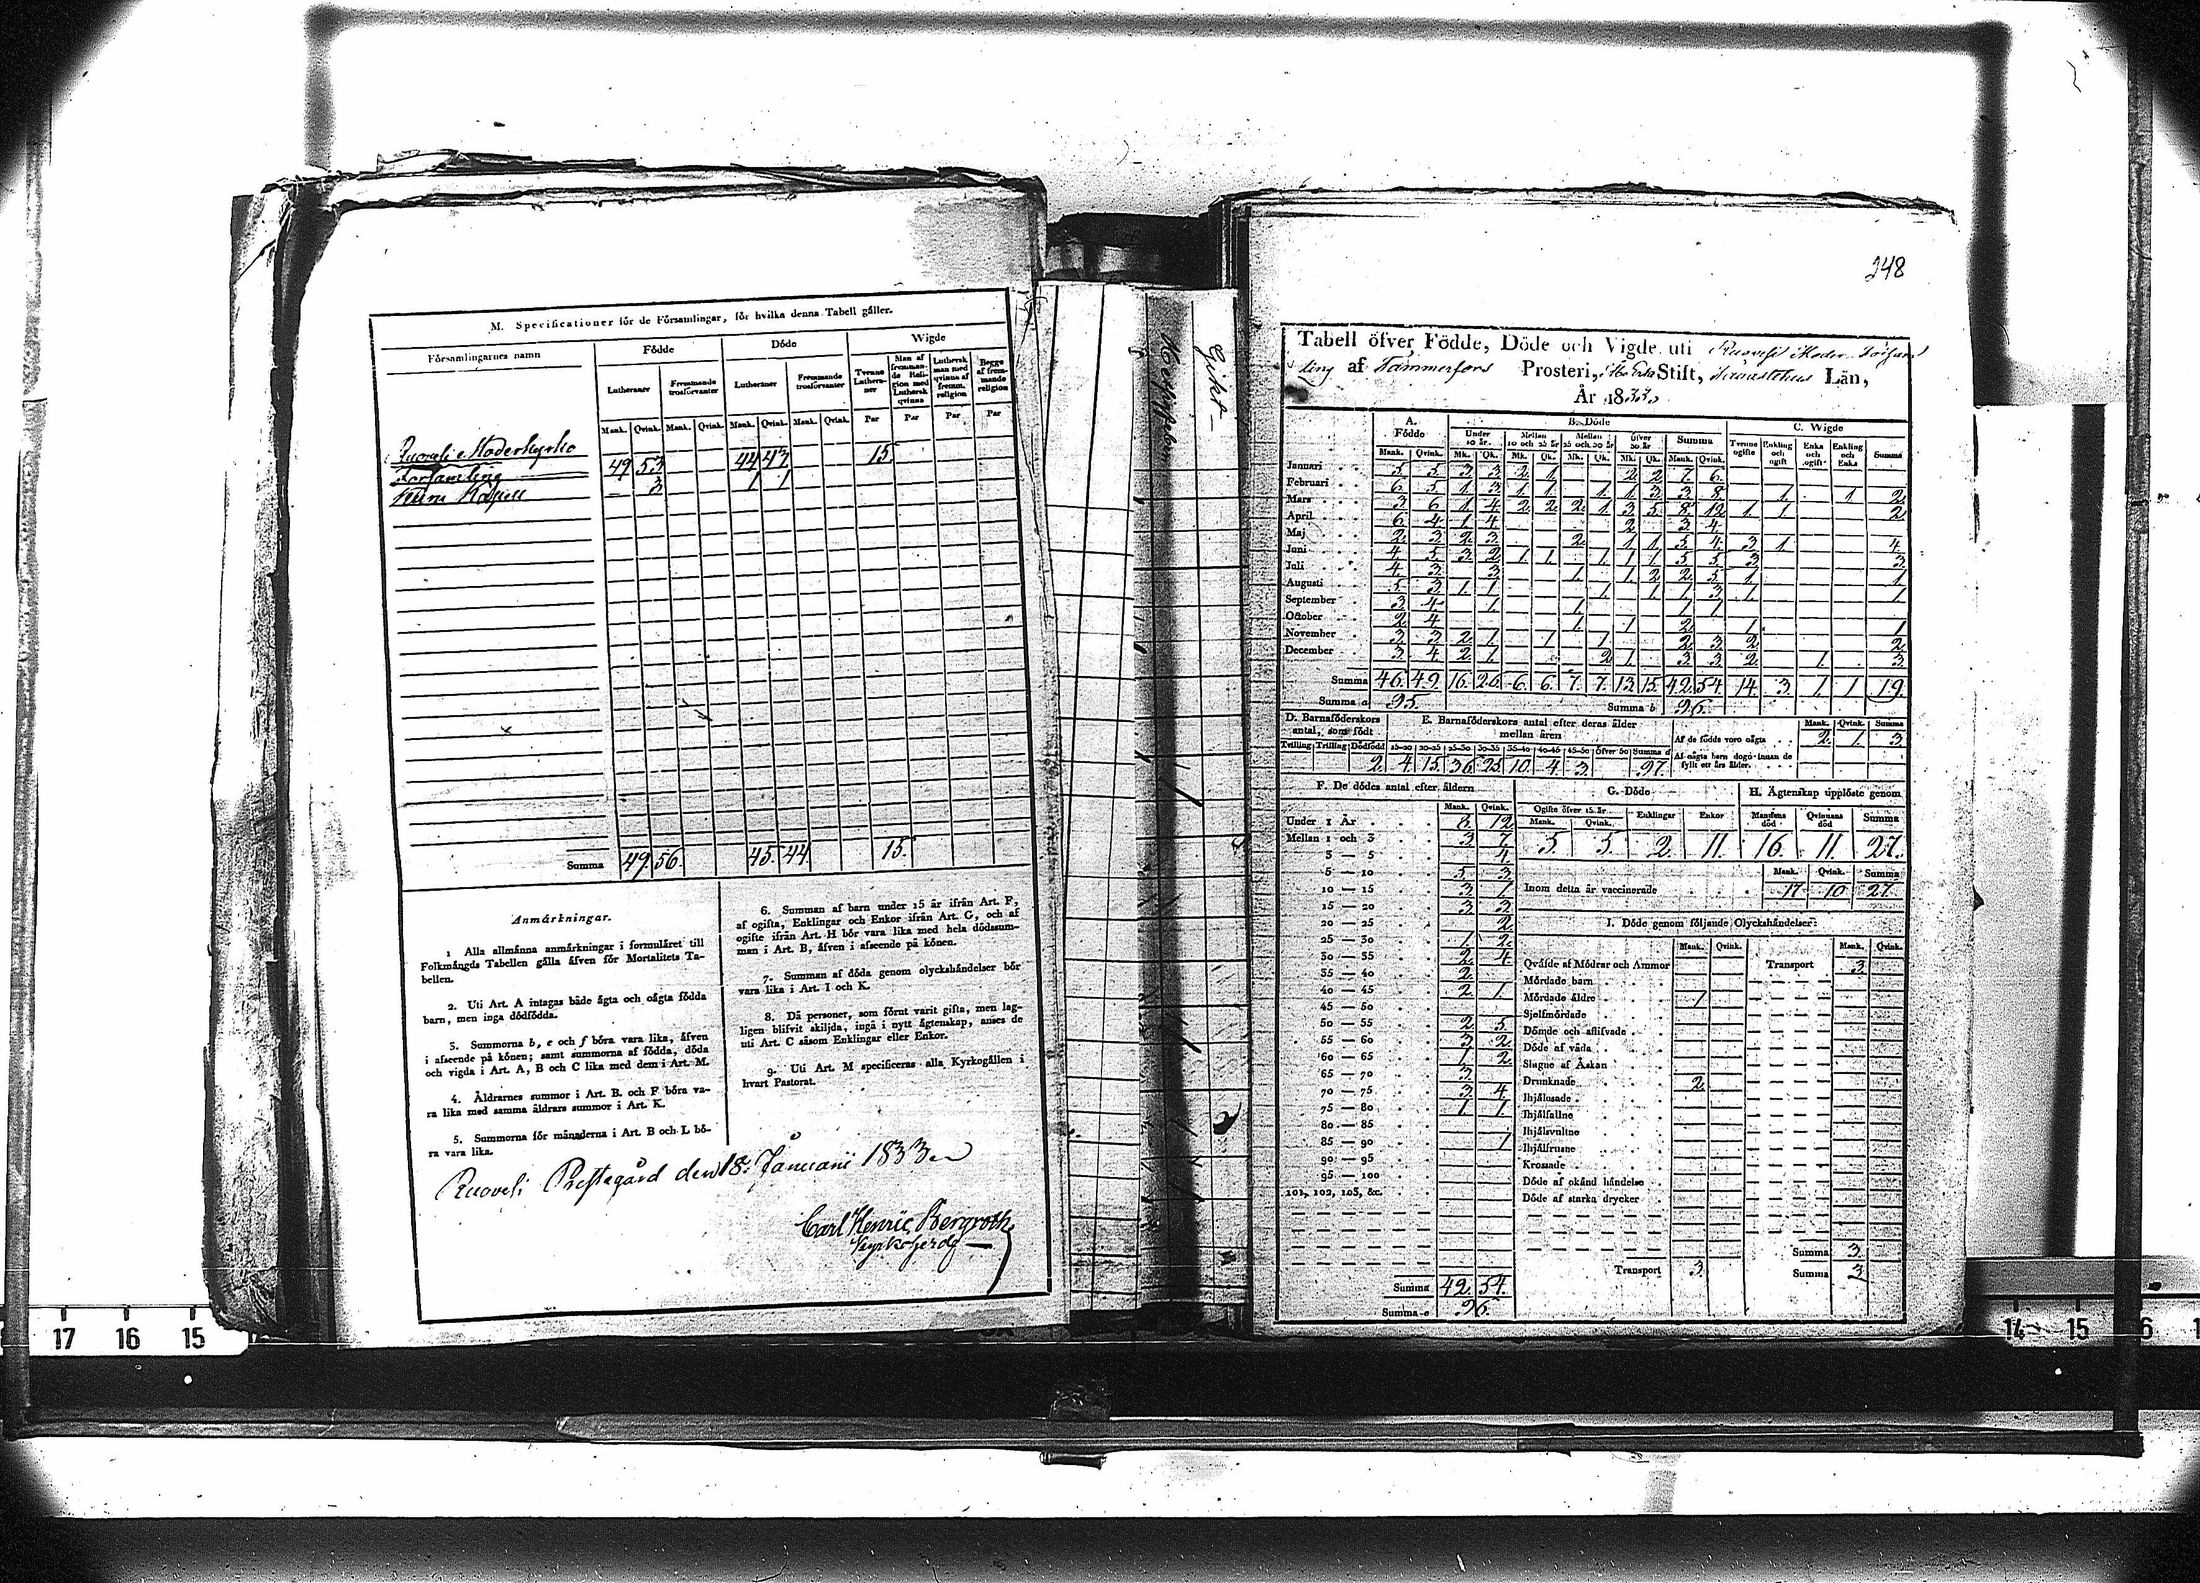 M. Specificationer för de Församlingar, för hvilka denna Tabell gäller.
Församlingarnes namn Födde Döde Wigde
Lutheraner Fremmande trosförvanter Lutheraner Fremmande trosförvanter Tvenne Lutheraner Man af fremmande Religion med Luthersk qvinna Luthersk man med qvinna af fremm. religion Begge af fremmande religion
Mank. Qvink. Mank. Qvink. Mank. Qvink. Mank. Qvink. Par Par Par Par
Ruovesi Moderkyrko 49 53 44 43 15
Församling
Kuru Kapell – 3 1 1
Summa 49. 56. 45. 44 15.
Anmärkningar.
1 Alla allmänna anmärkningar i formuläret till
Folkmängds Tabellen gälla äfven för Mortalitets Ta-
bellen.
2. Uti Art. A intagas både ägta och oägta födda
barn, men inga dödfödda.
3. Summorna b, e och f böra vara lika, äfven
i afseende på könen; samt summorna af födda, döda
och vigda i Art. A, B och C lika med dem i Art. M.
4. Åldrarnes summor i Art. B. och F böra va-
ra lika med samma åldrars summor i Art. K.
5. Summorna för månaderna i Art. B och L bö-
ra vara lika.
6. Summan af barn under 15 år ifrån Art. F,
af ogifta, Enklingar och Enkor ifrån Art. G, och af
ogifte ifrån Art. H bör vara lika med hela dödssum-
man i Art. B, äfven i afseende på könen.
7. Summan af döda genom olyckshändelser bör
vara lika i Art. I och K.
8. Då personer, som förut varit gifta, men lag-
ligen blifvit skiljda, ingå i nytt ägtenskap, anses de
uti Art. C såsom Enklingar eller Enkor.
9. Uti Art. M specificeras alla Kyrkogällen i
hvart Pastorat.
Ruovesi Prestegård den 18. Januarii 1833
Carl Henric Bergroth
Kyrkoherde
Gikt
248
Tabell öfver Födde, Döde och Vigde uti Ruovesi Moder Försam
ling af Tammerfors Prosteri, Åbo Erke Stift, Tavastehus Län,
År 1833.
A. Födde B. Döde C. Wigde
Under 10 år. Mellan 10 och 25 år Mellan 25 och 50 år Öfver 50 år Summa Tvenne ogifte Enkling och ogift Enka och ogift Enkling och Enka Summa
Mank. Qvink. Mk. Qk. Mk. Qk. Mk. Qk. Mk. Qk. Mank. Qvink.
Januari 5 5 3 3 2 1 2 2 7 6
Februari 6 5 1 3 1 1 1 1 3 3 8 1 1 2
Mars 3 6 1 4 2 2 2 1 3 5 8 12 1 1 2
April 6 4 1 4 2 3 4
Maj 2 3 2 3 2 1 1 5 4 3 1 4
Juni 4 5 3 2 1 1 1 1 1 5 5 3 3
Juli 4 3 3 1 1 2 2 5 1 1
Augusti 5 3 1 1 1 1 1 3 1 1
September 3 4 1 1 1 1
October 2 4 1 1 2 1 1
November 3 3 2 1 1 1 2 3 2 2
December 3 4 2 1 2 1 3 3 2 1 3
Summa 46. 49. 16. 26. 6. 6. 7. 7. 13. 15. 42. 54. 14. 3. 1. 1. 19.
Summa a 95. Summa b 96.
D. Barnaföderskors antal, som födt E. Barnaföderskors antal efter deras ålder mellan åren Mank. Qvink. Summa
Af de födde voro oägta 2. 1. 3.
Tvilling Trilling Dödfödd 15–20 20–25 25–30 30–35 35–40 40–45 45–50 Öfver 50 Summa d
2. 4. 15. 36. 25. 10. 4. 3. 97.
Af oägta barn dogo innan de fyllt ett års ålder.
F. De dödes antal efter åldern
Mank. Qvink.
Under 1 År 8. 12
Mellan 1 och 3 3 7
3 — 5 4
5 — 10 5 3
10 — 15 3 1
15 — 20 3 3
20 — 25 2
25 — 30 1 2
30 — 35 2 4
35 — 40 2
40 — 45 2 1
45 — 50
50 — 55 2 5
55 — 60 3 2
60 — 65 1 2
65 — 70 3
70 — 75 3 4
75 — 80 1 1
80 — 85
85 — 90 1
90 — 95
95 — 100
101, 102, 103, &c.
Summa 42. 54.
Summa e 96.
G. Döde H. Ägtenskap upplöste genom
Ogifte öfver 15 år Enklingar Enkor Mannens död Qvinnans död Summa
Mank. Qvink.
5. 5. 2 11. 16. 11. 27.
Mank. Qvink. Summa
Inom detta år vaccinerade 17 10 27.
I. Döde genom följande Olyckshändelser:
Mank. Qvink. Mank. Qvink.
Qväfde af Mödrar och Ammor Transport 3
Mördade barn
Mördade äldre 1
Sjelfmördade
Dömde och aflifvade
Döde af våda
Slagne af Åskan
Drunknade 2
Ihjälosade
Ihjälfallne
Ihjälsvultne
Ihjälfrusne
Krossade
Döde af okänd händelse
Döde af starka drycker
Summa 3
Transport 3. Summa 3
17 16 15 14 15